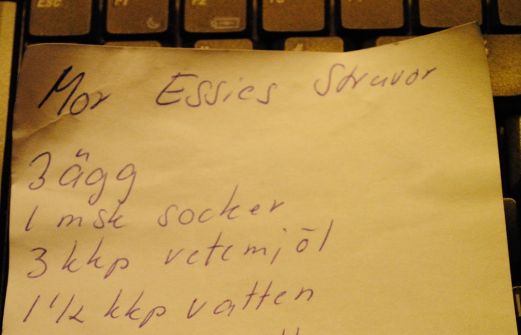 Esc
F1
F2
Mor Essies Struvor
3 ägg
1 msk socker
3 kkp vetemjöl
1 1/2 kkp vatten